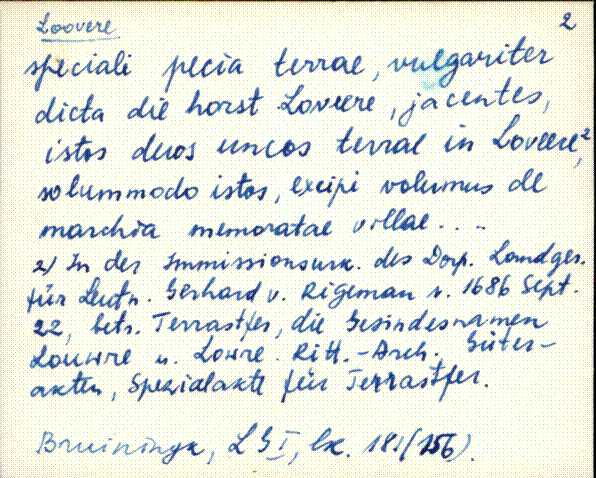 Loovere 2
speciali pecia terrae, vulgariter
dicta die horst Loveere, jacentes,
istos duos uncos terrae in Loveere,²
solummodo istos, excipi volumus de
marchia memoratae villae....
2) In der Immissionsurk. des Dorp. Landger.
für Leutn. Gerhard v. Rigeman v. 1686 Sept.
22, betr. Terrastfer, die Gesindesnamen
Louwre u. Lowre. Ritt.-Arch. Güter-
akten, Spezialakte für Terrastfer.
Bruiningk, LG I, lk. 181 (156).